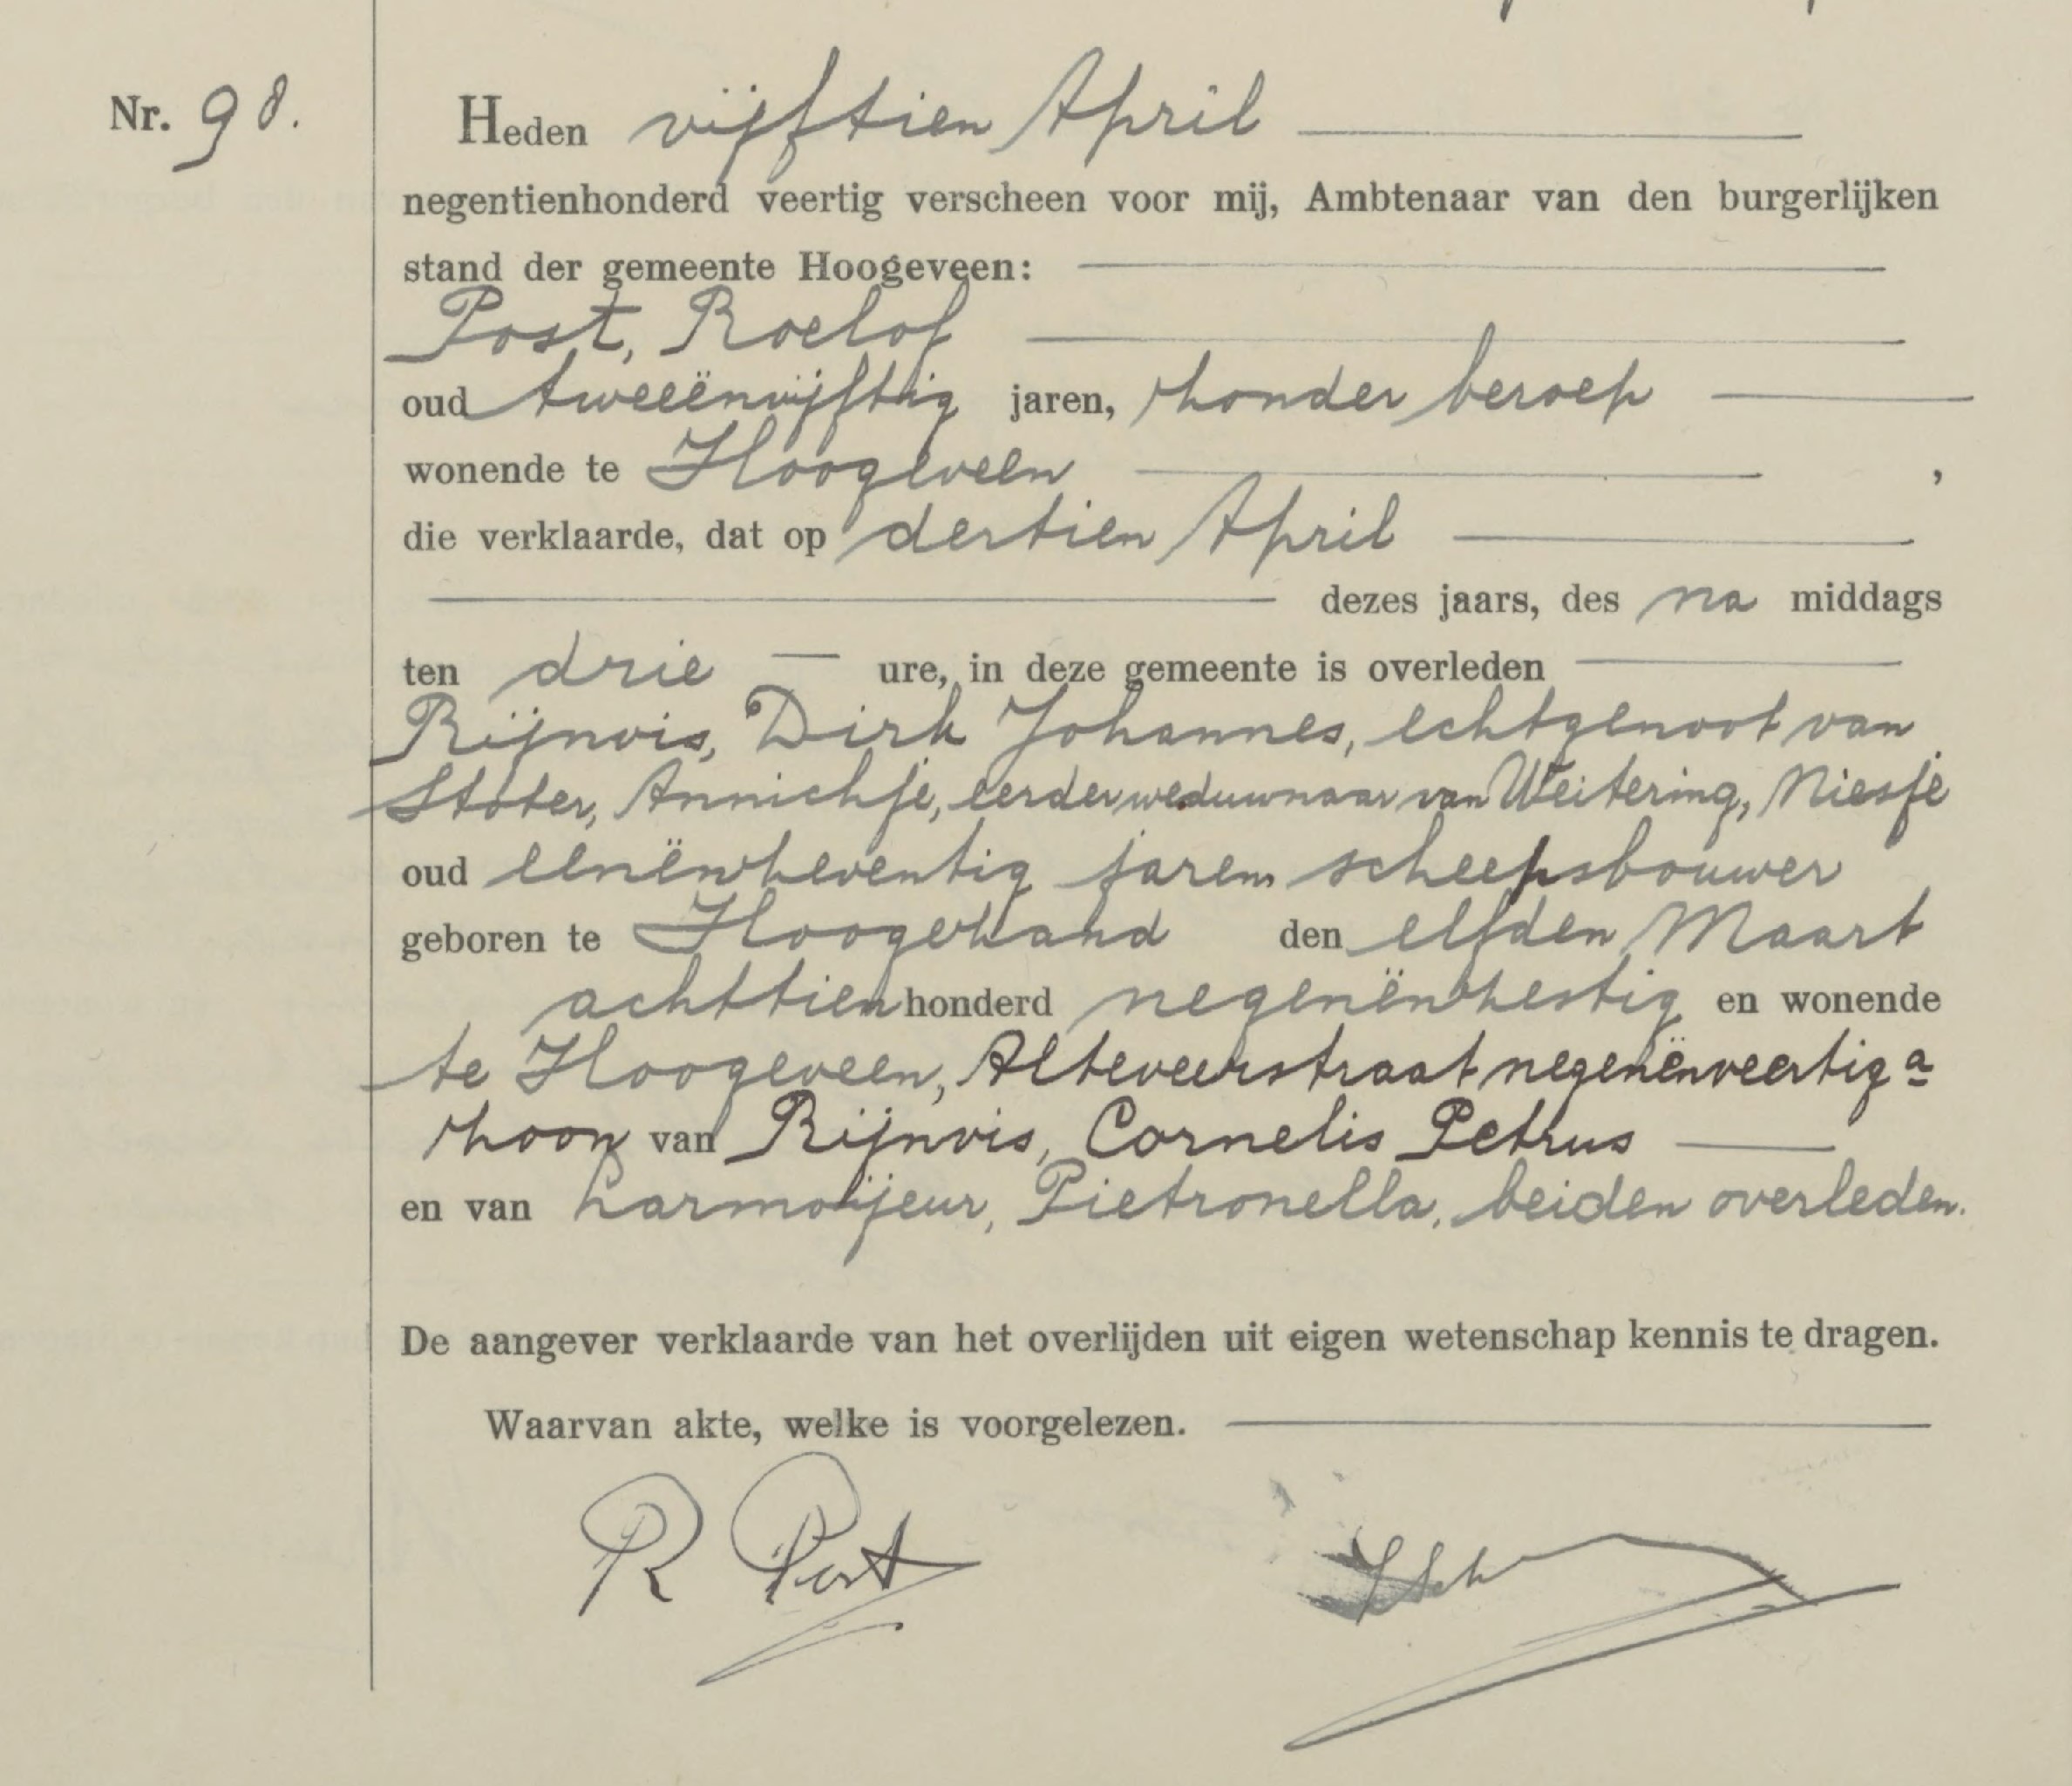 Nr. 98.
Heden vijftien April
negentienhonderd veertig verscheen voor mij, Ambtenaar van den burgerlijken
stand der gemeente Hoogeveen:
Post, Roelof
oud tweeënvijftig jaren, zonder beroep
wonende te Hoogeveen ,
die verklaarde, dat op dertien April
dezes jaars, des na middags
ten drie ure, in deze gemeente is overleden
Rijnvis, Dirk Johannes, echtgenoot van
Stoter, Annichje, eerder weduwnaar van Weitering, Niesje
oud eenënzeventig jaren scheepsbouwer
geboren te Hoogezand den elfden Maart
achttienhonderd negenënzestig en wonende
te Hoogeveen, Alteveerstraat negenënveertig a
zoon van Rijnvis, Cornelis Petrus
en van Larmoijeur, Pietronella, beiden overleden.
De aangever verklaarde van het overlijden uit eigen wetenschap kennis te dragen.
Waarvan akte, welke is voorgelezen.
R Post